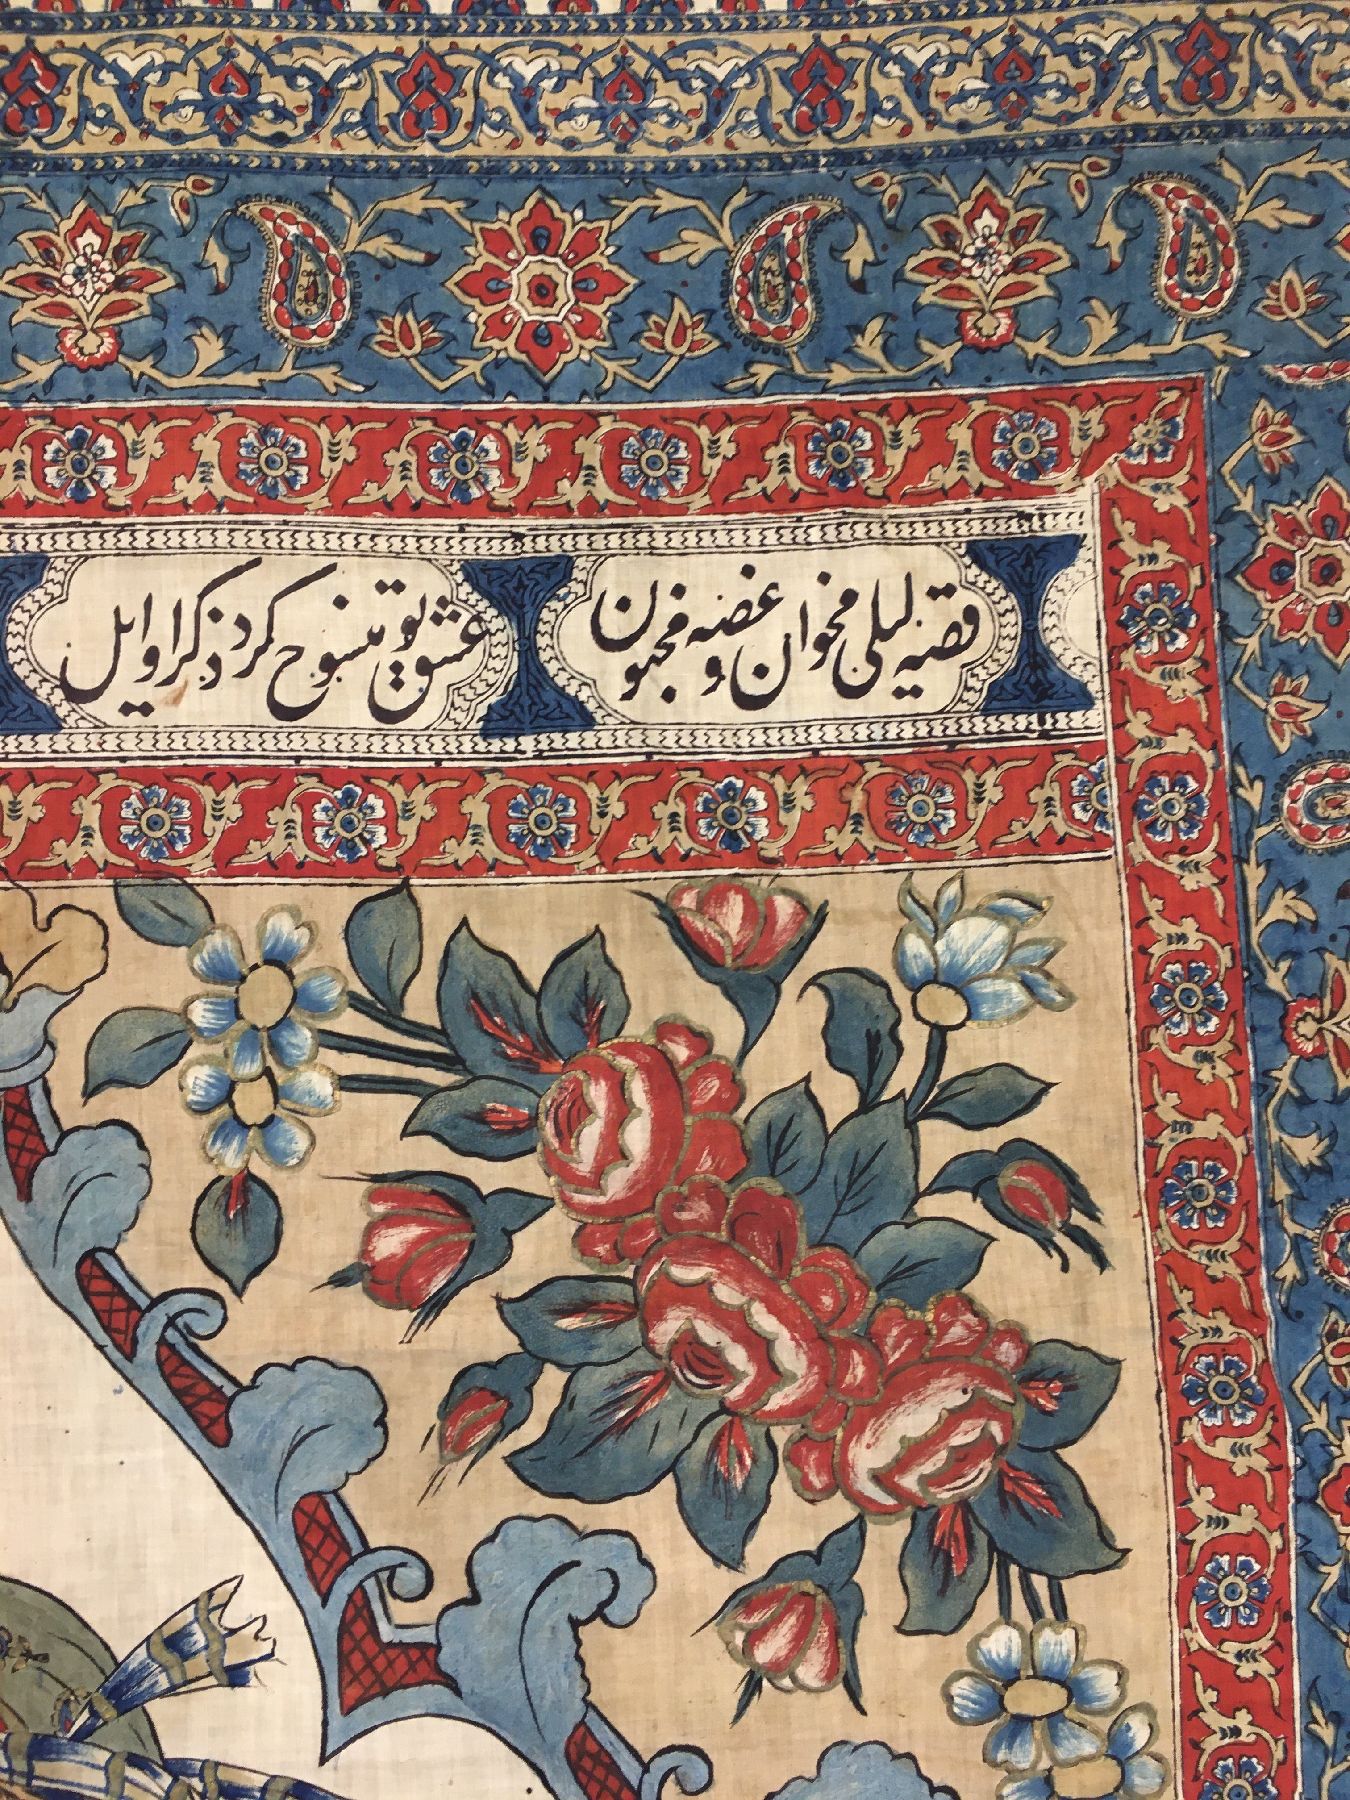 قصه لیلی مخوان و غصه مجنون
عشق تو منسوخ کرد ذکر اوایل